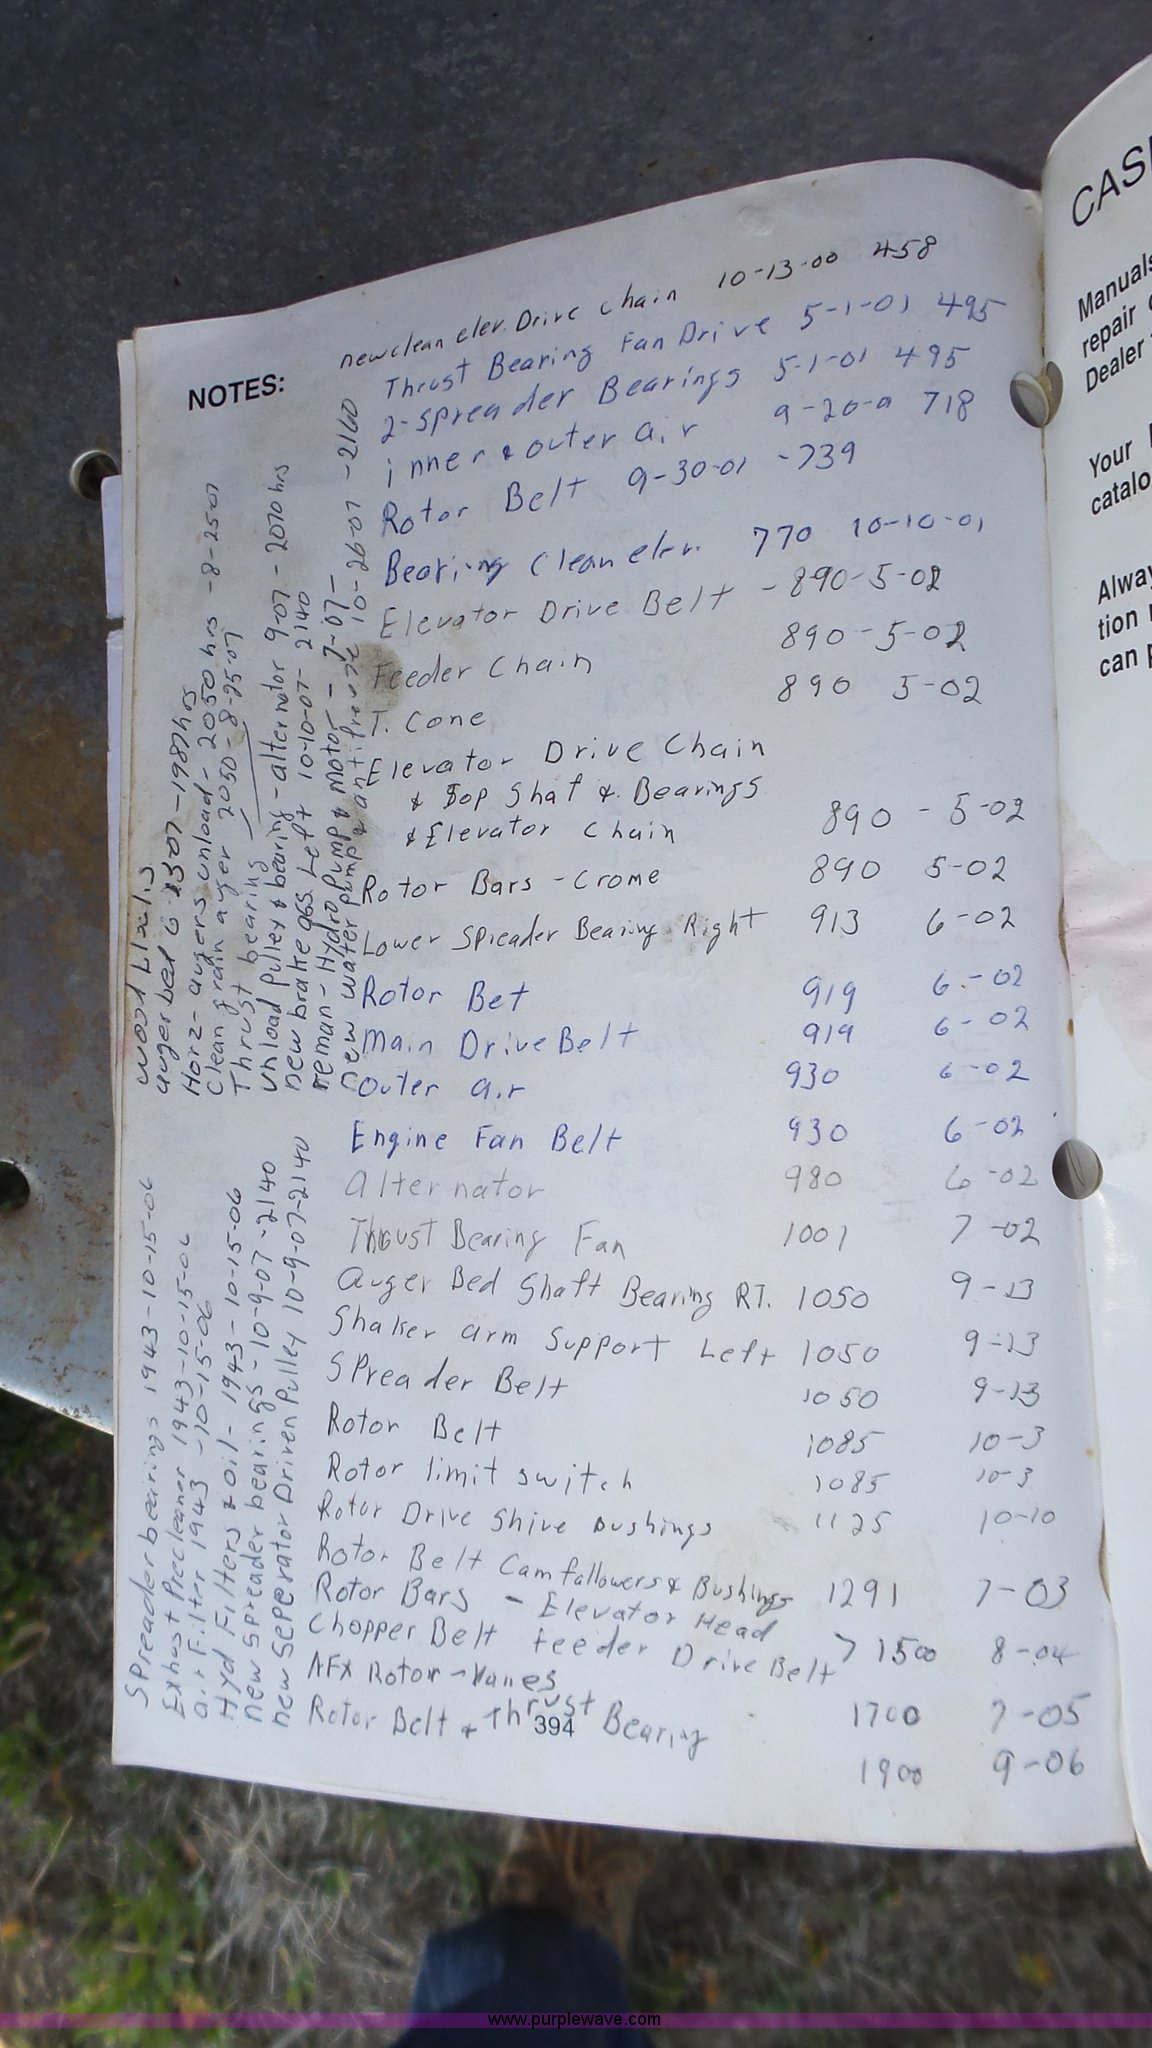 NOTES:
new clean elev. Drive Chain 10-13-00 458
Thrust Bearing Fan Drive 5-1-01 495
2-Spreader Bearings 5-1-01 495
inner & outer air 9-20-0 718
Rotor Belt 9-30-01 -739
Bearing Clean elev. 770 10-10-01
Elevator Drive Belt -890-5-02
Feeder Chain 890-5-02
T. Cone 890 5-02
Elevator Drive Chain
& Top Shaft & Bearings
& Elevator Chain 890 - 5-02
Rotor Bars - Crome 890 5-02
Lower Spreader Bearing Right 913 6-02
Rotor Bet 919 6-02
Main Drive Belt 919 6-02
Outer air 930 6-02
Engine Fan Belt 930 6-02
Alternator 980 6-02
Thrust Bearing Fan 1001 7-02
Auger Bed Shaft Bearing RT. 1050 9-23
Shaker arm Support Left 1050 9-23
Spreader Belt 1050 9-23
Rotor Belt 1085 10-3
Rotor limit switch 1085 10-3
Rotor Drive Shive Bushings 1125 10-10
Rotor Belt Cam followers & Bushings 1291 7-03
Rotor Bars - Elevator Head
Chopper Belt Feeder Drive Belt > 1500 8-04
AFX Rotor - Vanes 1700 7-05
Rotor Belt & Thrust Bearing 1900 9-06
394
auger bed 6 2307-1987hrs
Horz- augers unload- 2050 hrs -8-25-07
Clean grain auger 2050- 8-25-07
Thrust bearing
unload Pulley & bearing - alternator 9-07 -2070 hrs
new brake ass. Left 10-10-07- 2140
reman-Hydro Pump & Motor - 7-07-
new water pump & antifreeze 10-26-07 -2160
Spreader bearings 1943-10-15-06
Exhust Precleaner 1943-10-15-06
air Filter 1943 -10-15-06
Hyd Filters & oil- 1943-10-15-06
new Spreader bearings -10-9-07 -2140
new Seperator Driven Pulley 10-9-07-2140
CAS
Manuals
repair
Dealer
Your
catalo
Alway
tion
can
www.purplewave.com